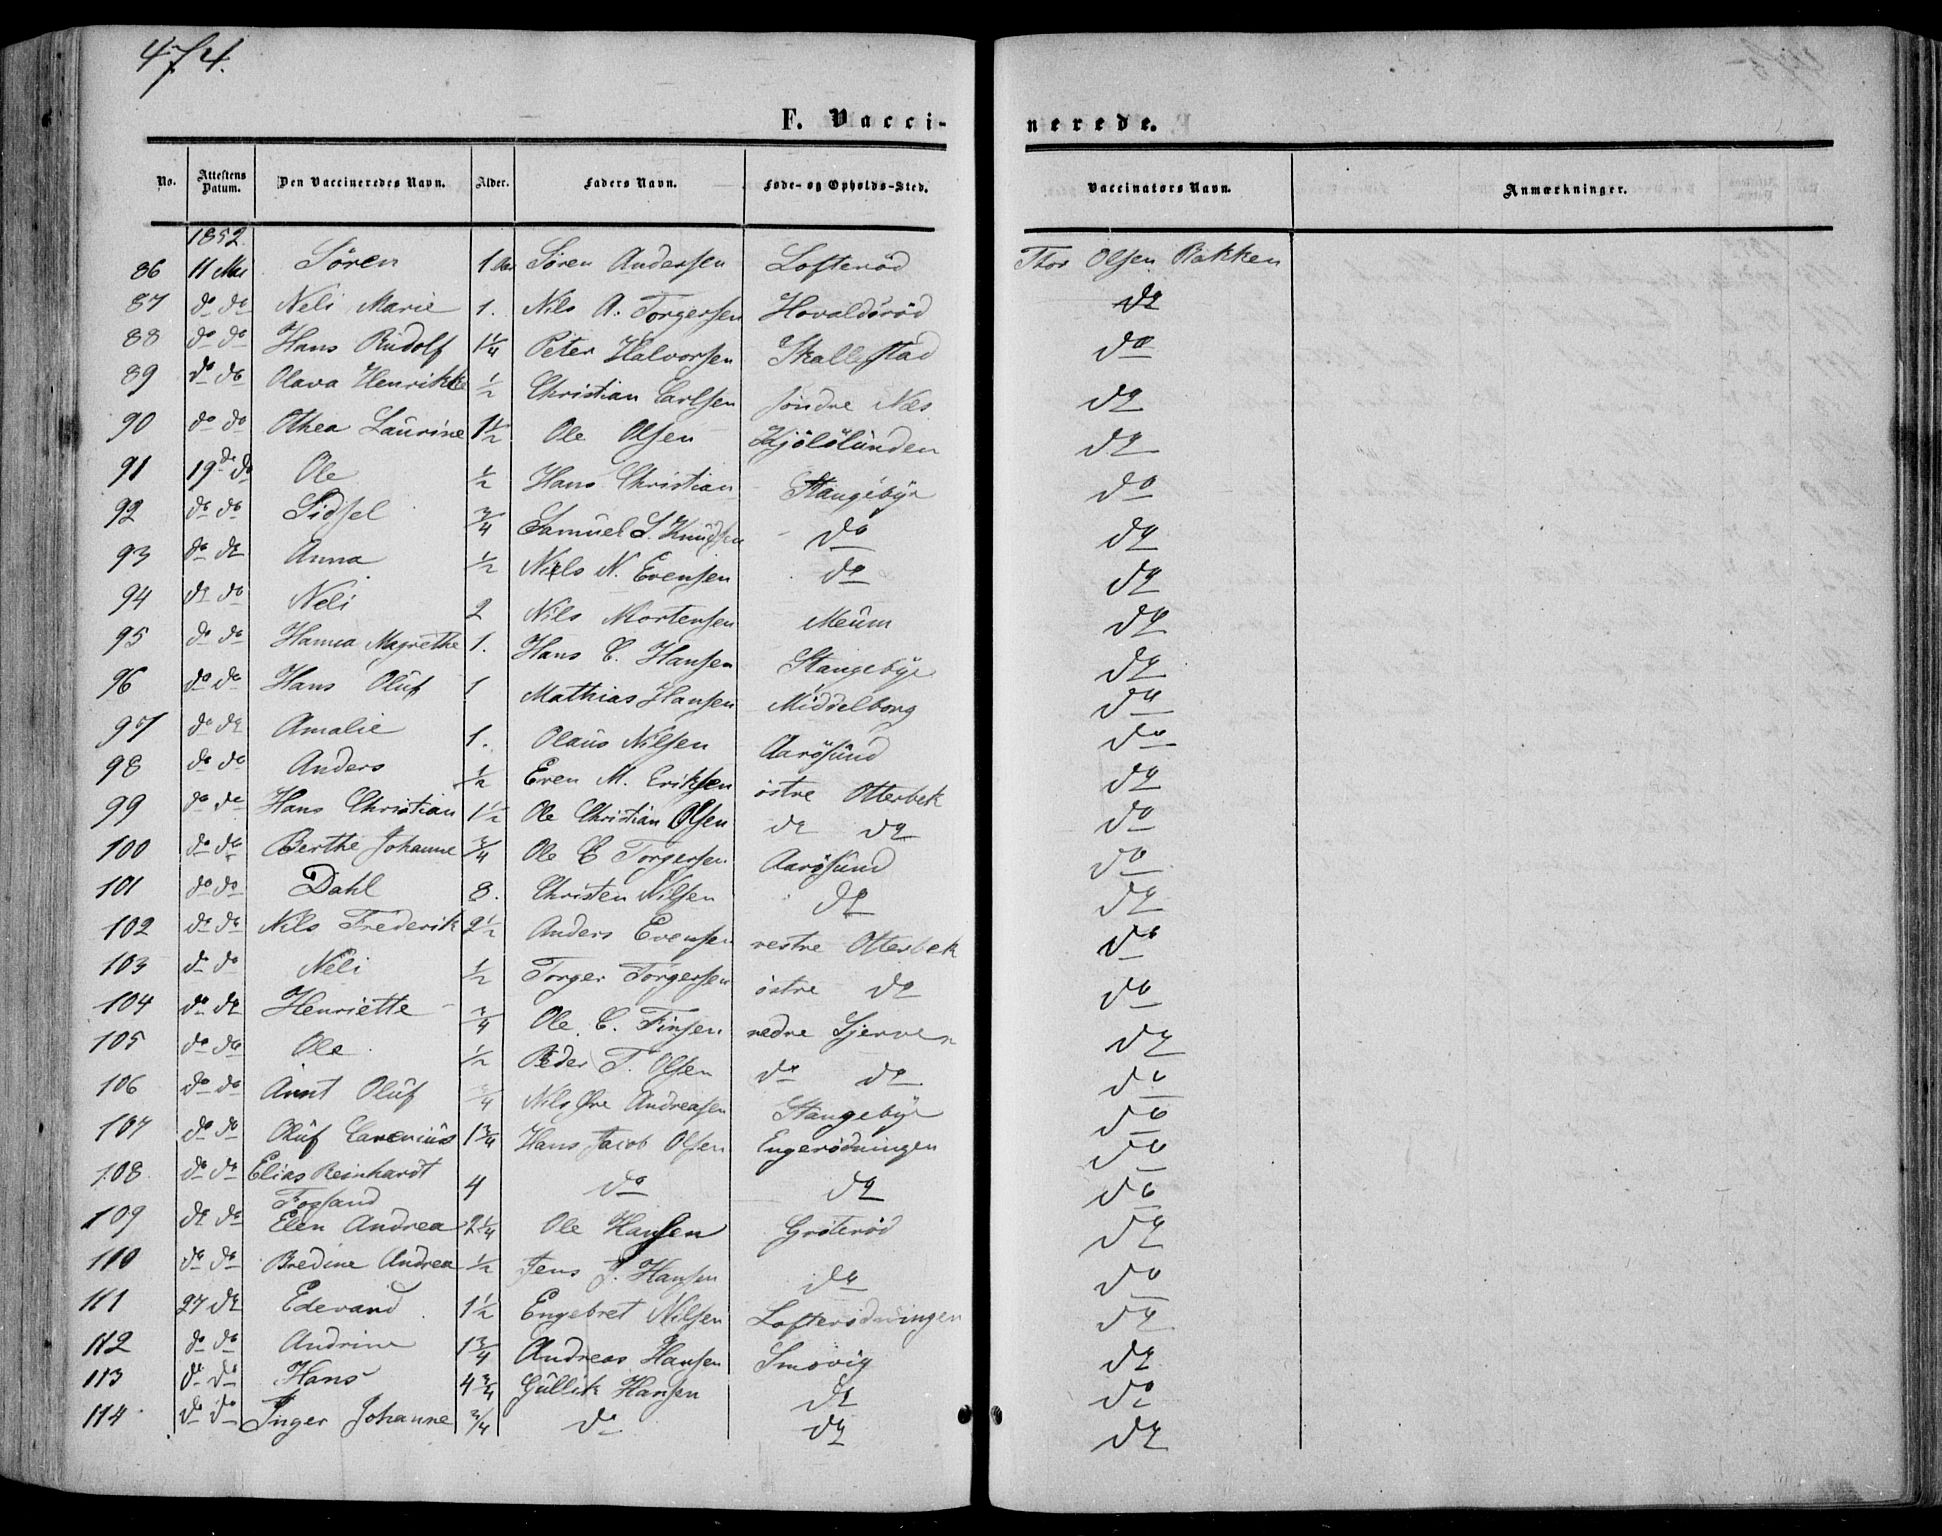 474.
F. Vaccinerede.
No. Attestens Datum. Den Vaccineredes Navn. Alder. Faders Navn. Føde- og Opholds-Sted. Vaccinators Navn. Anmærkninger.
1852.
86 11 Mai Sören 1 Aar Sören Andersen Lofterød Thor Olsen Bakken
87 do do Neli Marie 1. Nils A. Torgersen Hovaldsrød do
88 do do Hans Rudolf 1 1/4 Peter Halvorsen Skallestad do
89 do do Olava Henrikke 1/2 Christian Carlsen söndre Næs do
90 do do Othea Laurine 1 1/2 Ole Olsen Kjölölunden do
91 19de do Ole 1/2 Hans Christian Stangebye do
92 do do Sidsel 3/4 Samuel S. Knudsen do do
93 do do Anna 1/2 Niels N. Evensen do do
94 do do Neli 2 Nils Mortensen Meum do
95 do do Hanna Magrethe 1. Hans C. Hansen Stangebye do
96 do do Hans Oluf 1 Mathias Hansen Middelborg do
97 do do Amalie 1. Olaus Nilsen Aarösund do
98 do do Anders 1/2 Even M. Eriksen östre Otterbek do
99 do do Hans Christian 1 1/2 Ole Christian Olsen do do do
100 do do Berthe Johanne 3/4 Ole C Torgersen Aarösund do
101 do do Dahl 8. Christen Nilsen do do
102 do do Nils Frederik 2 1/2 Anders Evensen vestre Otterbek do
103 do do Neli 1/2 Torger Torgersen östre do do
104 do do Henriette 3/4 Ole C. Finsen nedre Gjerven do
105 do do Ole 1/2 Peder T. Olsen do do do
106 do do Arnt Oluf 3/4 Nils Øre Andreasen Stangebye do
107 do do Oluf Carenius 1 3/4 Hans Jacob Olsen Engerødningen do
108 do do Elias Reinhardt Fogsand 4 do do do
109 do do Elen Andrea 2 1/4 Ole Hansen Groterød do
110 do do Bredine Andrea 1/2 Jens J. Hansen do do
111 27 do Edevard 1 1/2 Engebret Nilsen Lofterødningen do
112 do do Andrine 1 3/4 Andreas Hansen Smovig do
113 do do Hans 4 3/4 Gullik Hansen do do
114 do do Inger Johanne 3/4 do do do